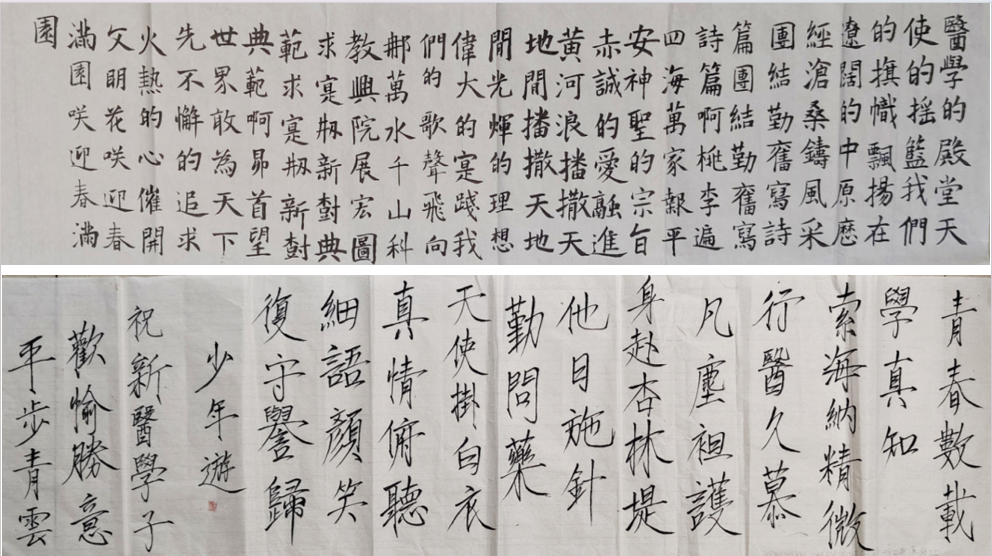 醫學的殿堂天
使的摇籃我們
的旗幟飄揚在
遼闊的中原歷
經滄桑鑄風采
團結勤奮寫詩
篇團結勤奮寫
詩篇啊桃李遍
四海萬家報平
安神聖的宗旨
赤誠的愛融進
黄河浪播撒天
地間播撒天地
間光輝的理想
偉大的寔踐我
們的歌聲飛向
那萬水千山科
教興院展宏圖
求寔刱新尌典
範求寔刱新尌
典範啊昂首望
世界敢為天下
先不懈的追求
火熱的心催開
文明花咲迎春
滿園咲迎春滿
園
青春數載
學真知
索海納精微
行醫久慕
凡塵袒護
身赴杏林堤
他日施針
勤問藥
天使掛白衣
真情俯聽
細語顏笑
復守譽歸
少年遊
祝新醫學子
歡愉勝意
平步青雲